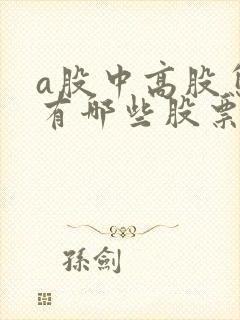 a股中高股
有哪些股票
孫劍